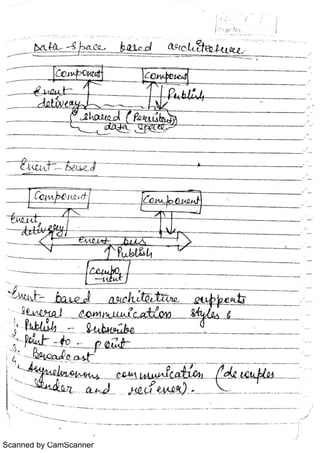 Page No
Data-Space based architecture
Component
Component
Event
delivery
Publish
Shared (Persistant)
data space
Event-based
Component
Component
Event
delivery
event bus
Publish
Compo
-nent
Event based architecture supports
several communication styles :
1. Publish - Subscribe
2. Point - to - point
3. Broadcast
4. Asynchronous communication (decouples
sender and reciever).
Scanned by CamScanner